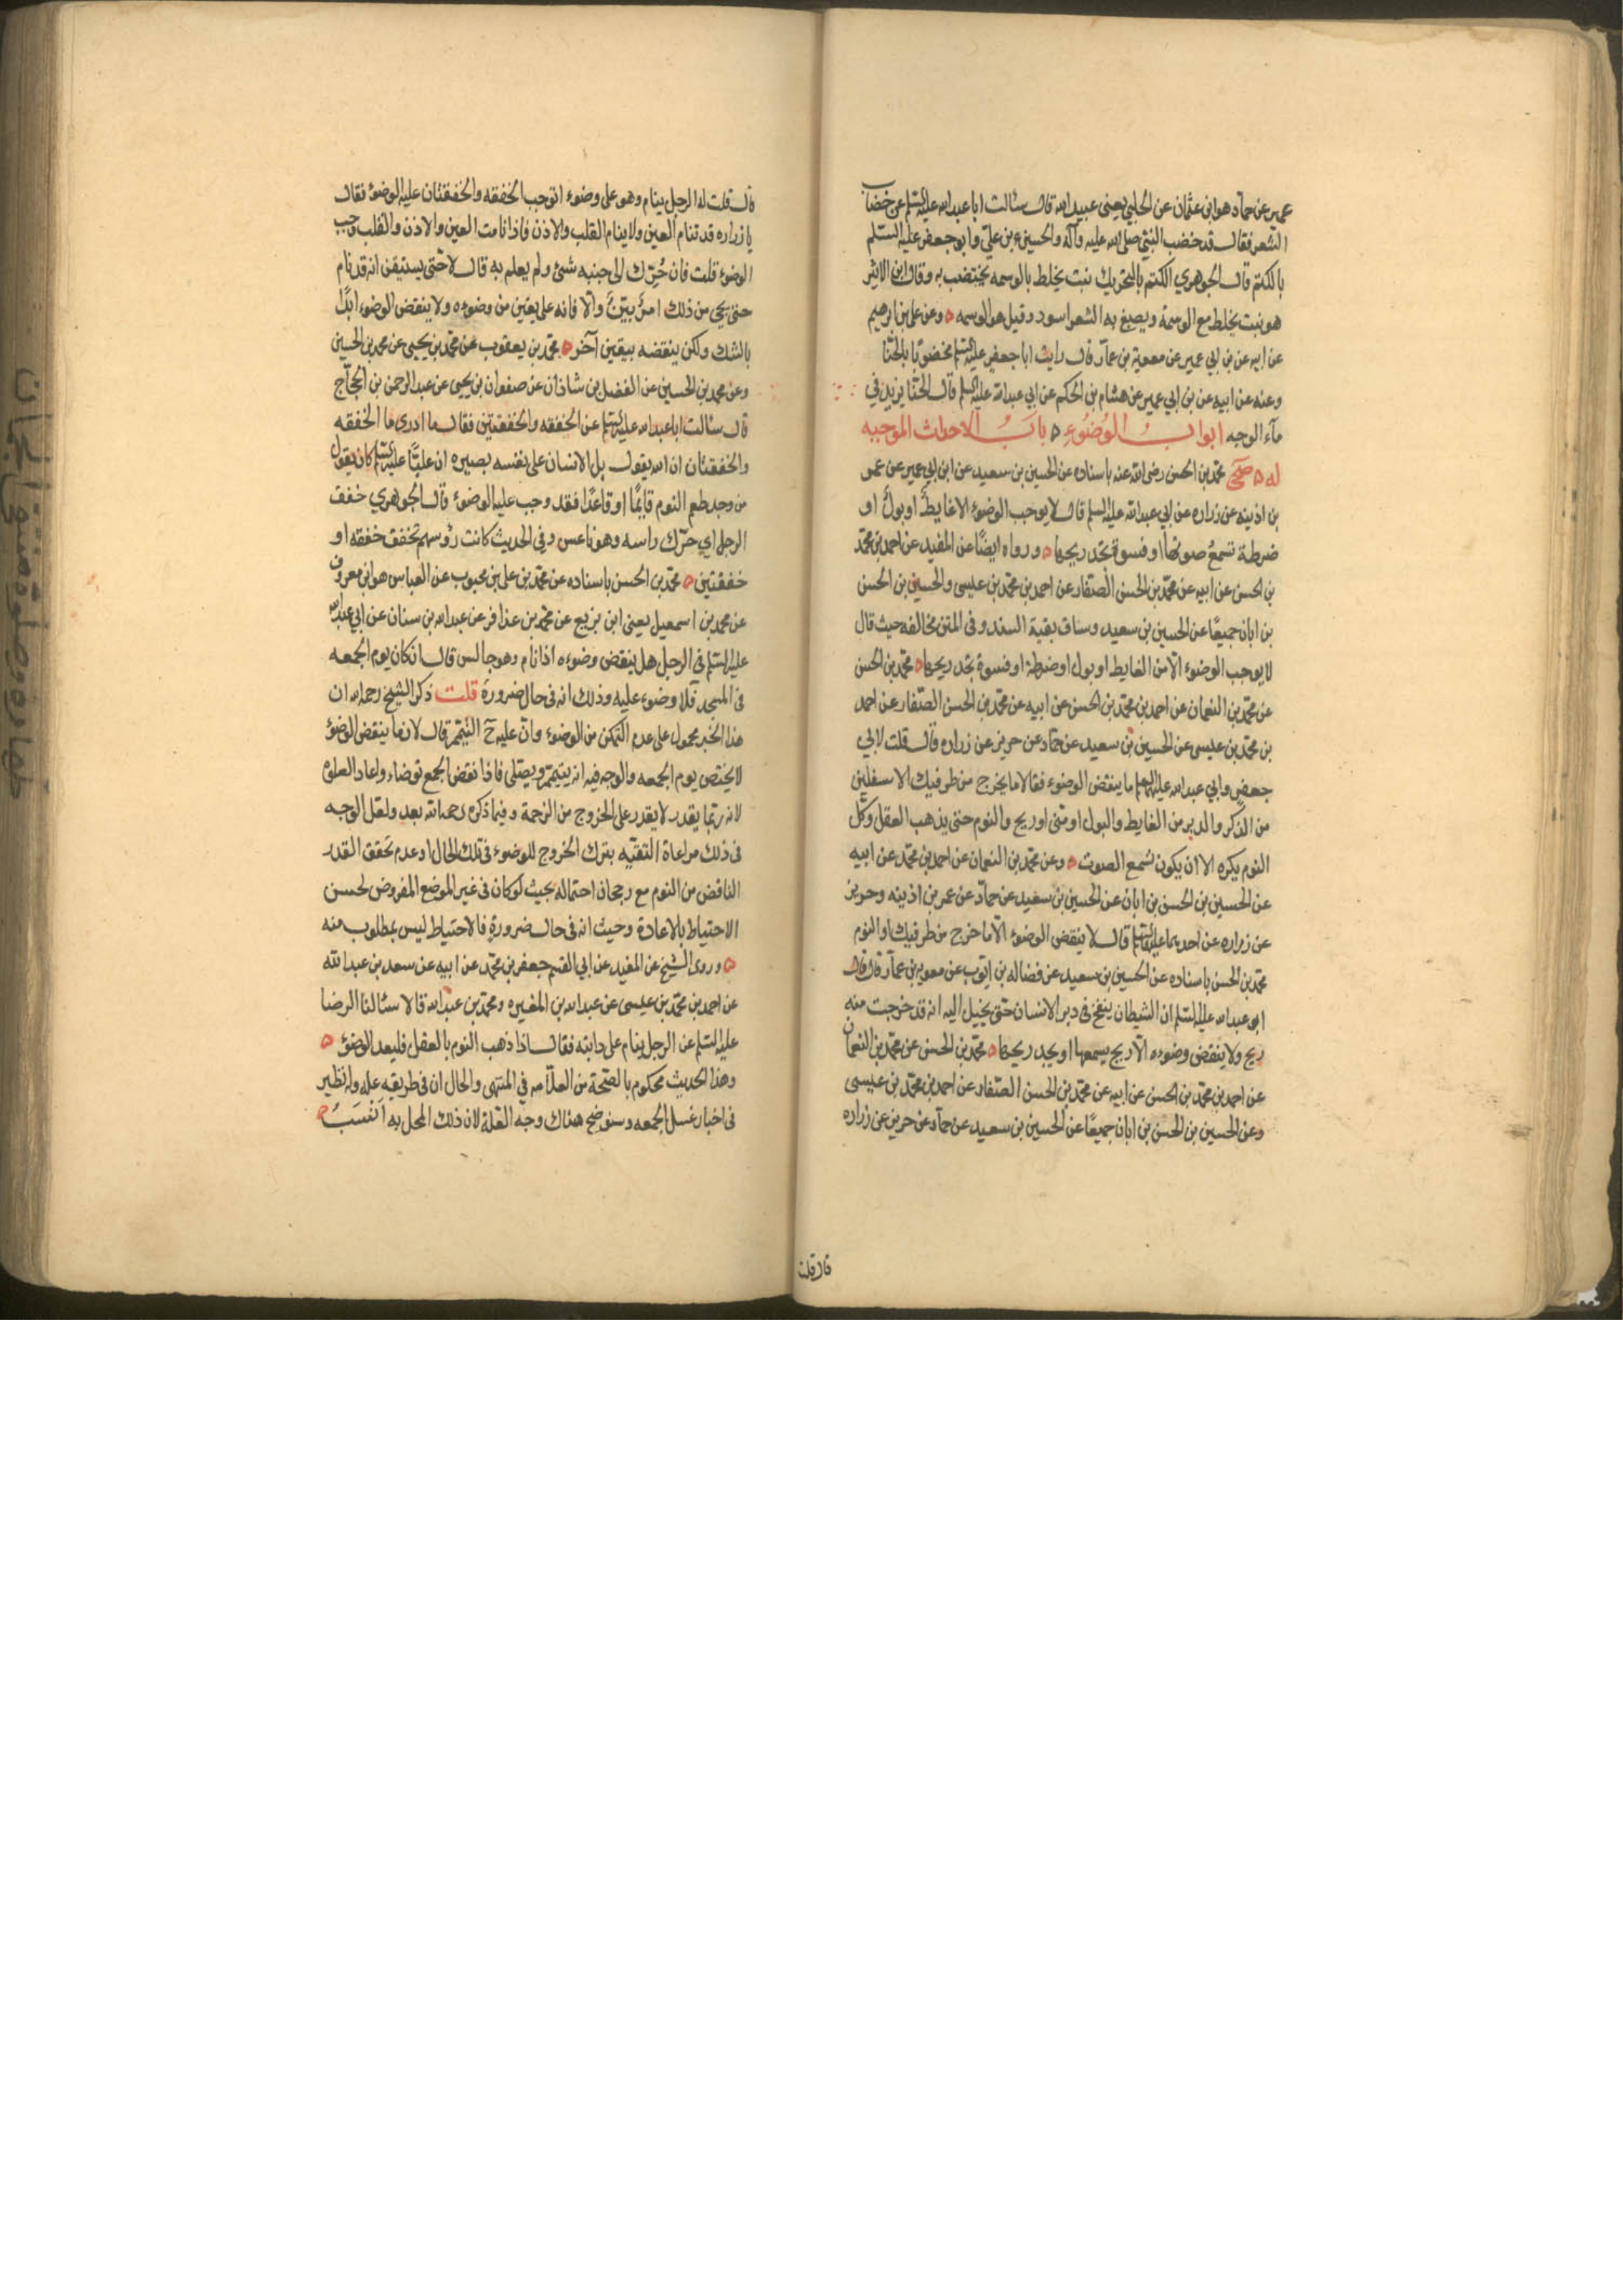 عمير عن حماد هو ابن عثمان عن الحلبي يعني عبيد الله قال سئالت ابا عبد الله عليه السلم عن خضاب
الشعر فقال قد خضب النبي صلى الله عليه وآله والحسين بن علي وابو جعفر عليه السلم
بالكتم قال الجوهري الكتم بالتحريك نبت يخلط بالوسمه يختضب به وقال ابن الاثير
هو نبت يخلط مع الوسمة ويصبغ به الشعر اسود وقيل هو الوسمه ه وعن علي بن ابرهيم
عن ابيه عن بن ابي عمير عن معوية بن عمار قال رايت ابا جعفر عليه السلم مخضوبا بالحنا
وعنه عن ابيه عن بن ابي عمير عن هشام بن الحكم عن ابي عبد الله عليه السلم قال الحنا يزيد في
مآء الوجه ابواب الوضوء ه باب الاحداث الموجبه
له ه صحي محمد بن الحسن رضي الله عنه باسناده عن الحسين بن سعيد عن ابن ابي عمير عن عمر
بن اذينه عن زراره عن ابي عبد الله عليه السلم قال لا يوجب الوضوء الا غايط او بول او
ضرطة تسمع صوتها او فسوة تجد ريحها ه ورواه ايضا عن المفيد عن احمد بن محمد
بن الحسن عن ابيه عن محمد بن الحسن الصفار عن احمد بن محمد بن عيسى والحسين بن الحسن
بن ابان جميعا عن الحسين بن سعيد وساق بقية السند وفي المتن مخالفه حيث قال
لا يوجب الوضوء الا من الغايط او بول او ضرطة او فسوة تجد ريحها ه محمد بن الحسن
عن محمد بن النعمان عن احمد بن محمد بن الحسن عن ابيه عن محمد بن الحسن الصفار عن احمد
بن محمد بن عيسى عن الحسين بن سعيد عن حماد عن حريز عن زراره قال قلت لابي
جعفر وابي عبد الله عليهما السلم ما ينقض الوضوء فقالا ما يخرج من طرفيك الاسفلين
من الذكر والدبر من الغايط والبول او مني او ريح والنوم حتى يذهب العقل وكل
النوم يكره الا ان يكون تسمع الصوت ه وعن محمد بن النعمان عن احمد بن محمد عن ابيه
عن الحسين بن الحسن بن ابان عن الحسين بن سعيد عن حماد عن عمر بن اذينه وحريز
عن زراره عن احدهما عليهما السلم قال لا ينقض الوضوء الا ما خرج من طرفيك او النوم
محمد بن الحسن باسناده عن الحسين بن سعيد عن فضاله بن ايوب عن معوية بن عمار قال قال
ابو عبد الله عليه السلم ان الشيطان ينفخ في دبر الانسان حتى يخيل اليه انه قد خرجت منه
ريح ولا ينقض وضوءه الا ريح يسمعها او يجد ريحها ه محمد بن الحسن عن محمد بن النعمان
عن احمد بن محمد بن الحسن عن ابيه عن محمد بن الحسن الصفار عن احمد بن محمد بن عيسى
وعن الحسين بن الحسن بن ابان جميعا عن الحسين بن سعيد عن حماد عن حريز عن زراره
قال قلت
قال قلت له الرجل ينام وهو على وضوء اتوجب الخفقه والخفقتان عليه الوضوء فقال
يا زراره قد تنام العين ولا ينام القلب والاذن فاذا نامت العين والاذن والقلب وجب
الوضوء قلت فان حرك الى جنبه شئ ولم يعلم به قال لا حتى يستيقن انه قد نام
حتى يجئ من ذلك امر بين والا فانه على يقين من وضوءه ولا ينقض الوضوء ابدا
بالشك ولكن ينقضه بيقين آخر ه محمد بن يعقوب عن محمد بن يحيى عن محمد بن الحسين
وعن محمد بن الحسين عن الفضل بن شاذان عن صفوان بن يحيى عن عبد الرحمن بن الحجاج
قال سئالت ابا عبد الله عليه السلم عن الخفقه والخفقتين فقال ما ادري ما الخفقه
والخفقتان ان الله يقول بل الانسان على نفسه بصيره ان عليا عليه السلم كان يقول
من وجد طعم النوم قايما او قاعدا فقد وجب عليه الوضوء قال الجوهري خفق
الرجل اي حرك راسه وهو ناعس وفي الحديث كانت رؤسهم تخفق خفقه او
خفقتين ه محمد بن الحسن باسناده عن محمد بن علي بن محبوب عن العباس هو ابن معروف
عن محمد بن اسمعيل يعني ابن بزيع عن محمد بن عذافر عن عبد الله بن سنان عن ابي عبد الله
عليه السلم في الرجل هل ينقض وضوءه اذا نام وهو جالس قال ان كان يوم الجمعه
في المسجد فلا وضوء عليه وذلك انه في حال ضرورة قلت ذكر الشيخ رحمه الله ان
هذا الخبر محمول على عدم التمكن من الوضوء وان عليه ح التيمم قال لان ما ينقض الوضوء
لا يختص يوم الجمعه والوجه فيه انه يتيمم ويصلي فاذا نقض الجمع توضاء واعاد الصلوة
لانه ربما يقدر لا يقدر على الخروج من الزحمة وفيما ذكره رحمه الله بعد ولعل الوجه
في ذلك مراعاة التقيه بترك الخروج للوضوء في تلك الحال او عدم تحقق القدر
الناقض من النوم مع رجحان احتماله بحيث لو كان في غير الموضع المفروض لحسن
الاحتياط بالاعادة وحيث انه في حال ضرورة فالاحتياط ليس بمطلوب منه
ه وروى الشيخ عن المفيد عن ابي القسم جعفر بن محمد عن ابيه عن سعد بن عبد الله
عن احمد بن محمد بن عيسى عن عبد الله بن المغيره ومحمد بن عبد الله قالا سئالنا الرضا
عليه السلم عن الرجل ينام على دابته فقال اذا ذهب النوم بالعقل فليعد الوضوء ه
وهذا الحديث محكوم بالصحة من العلامه في المنتهى والحال ان في طريقه عله وله نظير
في اخبار غسل الجمعه وسنوضح هناك وجه العلة لان ذلك المحل به انسب ه